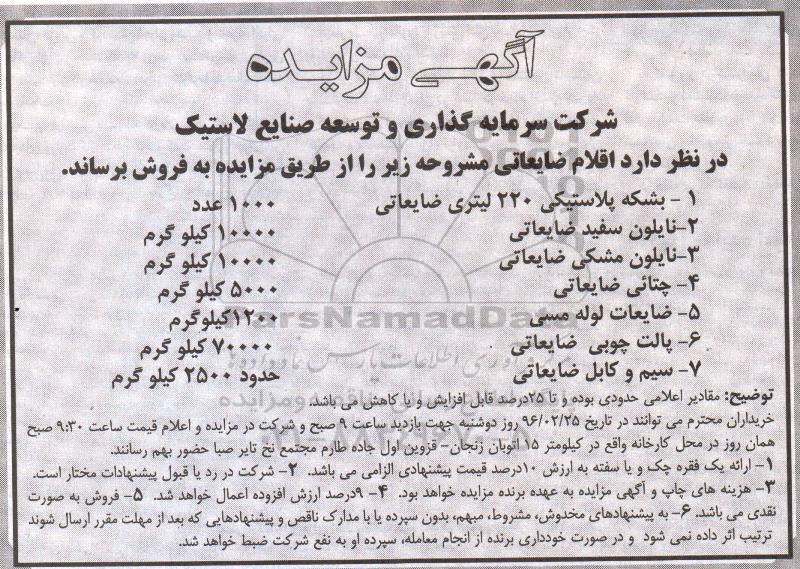 آگهی مزایده
شرکت سرمایه گذاری و توسعه صنایع لاستیک
در نظر دارد اقلام ضایعاتی مشروحه زیر را از طریق مزایده به فروش برساند.
۱- بشکه پلاستیکی ۲۲۰ لیتری ضایعاتی ۱۰۰۰ عدد
۲-نایلون سفید ضایعاتی ۱۰۰۰۰ کیلو گرم
۳-نایلون مشکی ضایعاتی ۱۰۰۰۰ کیلو گرم
۴- چتائی ضایعاتی ۵۰۰۰ کیلو گرم
۵- ضایعات لوله مسی ۱۲۰۰کیلوگرم
۶- پالت چوبی ضایعاتی ۷۰۰۰۰ کیلو گرم
۷- سیم و کابل ضایعاتی حدود ۲۵۰۰ کیلو گرم
توضیح: مقادیر اعلامی حدودی بوده و تا ۲۵درصد قابل افزایش و یا کاهش می باشد.
خریداران محترم می توانند در تاریخ ۹۶/۰۲/۲۵ روز دوشنبه جهت بازدید ساعت ۹ صبح و شرکت در مزایده و اعلام قیمت ساعت ۹:۳۰ صبح
همان روز در محل کارخانه واقع در کیلومتر ۱۵ اتوبان زنجان- قزوین اول جاده طارم مجتمع نخ تایر صبا حضور بهم رسانند.
۱- ارائه یک فقره چک و یا سفته به ارزش ۱۰درصد قیمت پیشنهادی الزامی می باشد. ۲- شرکت در رد یا قبول پیشنهادات مختار است.
۳- هزینه های چاپ و آگهی مزایده به عهده برنده مزایده خواهد بود. ۴- ۹درصد ارزش افزوده اعمال خواهد شد. ۵- فروش به صورت
نقدی می باشد. ۶- به پیشنهادهای مخدوش، مشروط، مبهم، بدون سپرده یا با مدارک ناقص و پیشنهادهایی که بعد از مهلت مقرر ارسال شوند
ترتیب اثر داده نمی شود و در صورت خودداری برنده از انجام معامله، سپرده او به نفع شرکت ضبط خواهد شد.
ParsNamadData